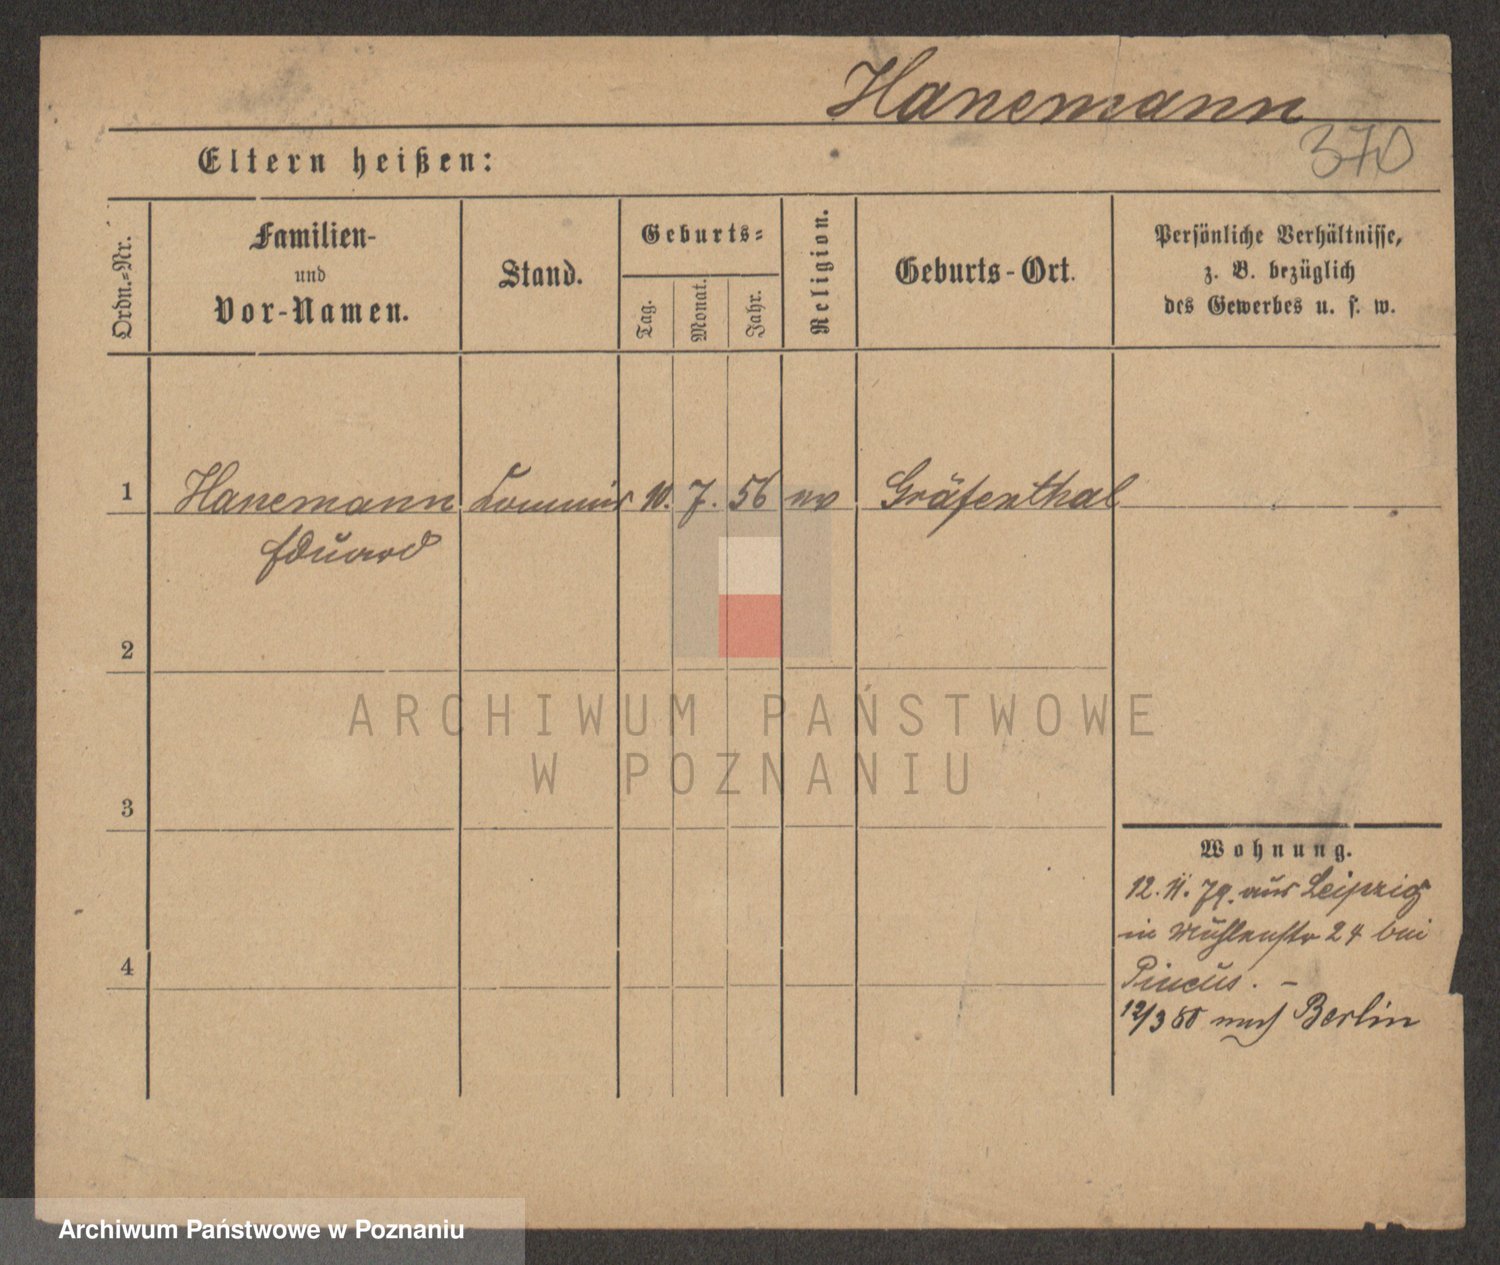 Hanemann
370
Eltern heißen:
Ordn.-Nr.
Familien-
und
Vor-Namen.
Stand.
Geburts-
Tag.
Monat.
Jahr.
Religion.
Geburts-Ort.
Persönliche Verhältnisse,
z. B. bezüglich
des Gewerbes u. s. w.
1 Hanemann Commis 10. 7. 56 ev Gräfenthal
Eduard
2
ARCHIWUM PAŃSTWOWE
W POZNANIU
3
Wohnung.
12. 11. 79. aus Leipzig
in Mühlenstr 24 bei
Pincus. –
4
12/3 80 nach Berlin
Archiwum Państwowe w Poznaniu